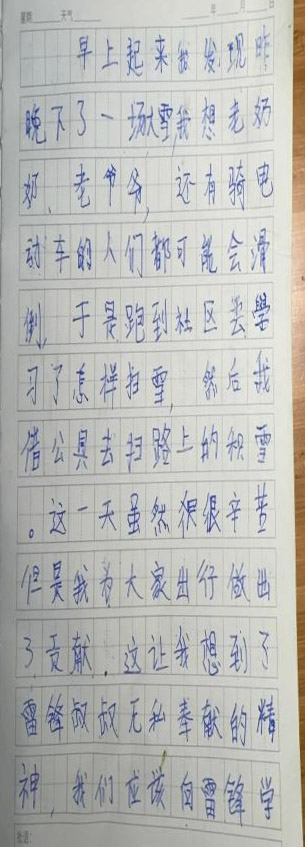 星期 天气 年 月 日
早上起来我发现昨
晚下了一场大雪,我想老奶
奶、老爷爷,还有骑电
动车的人们都可能会滑
倒,于是跑到社区去學
习了怎样扫雪,然后我
借公具去扫路上的积雪
。这一天虽然很很辛苦
但是我为大家出行做出
了贡献.这让我想到了
雷锋叔叔无私奉献的精
神,我们应该向雷锋学